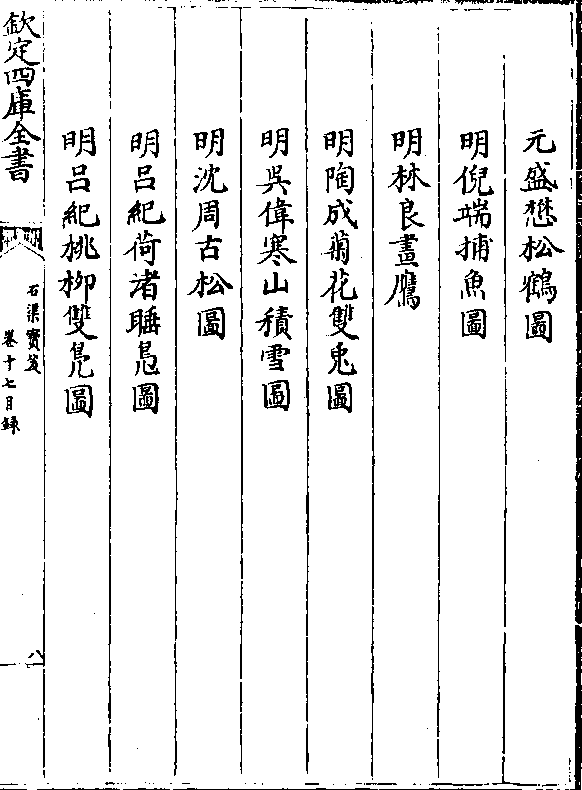 元盛懋松鶴圖
明倪端捕魚圖
明林良畫鷹
明陶成菊花雙兎圖
明吳偉寒山積雪圖
明沈周古松圖
明呂紀荷渚睡鳬圖
明呂紀桃柳雙鳬圖
欽定四庫全書
石渠寳笈
卷十七目録
八